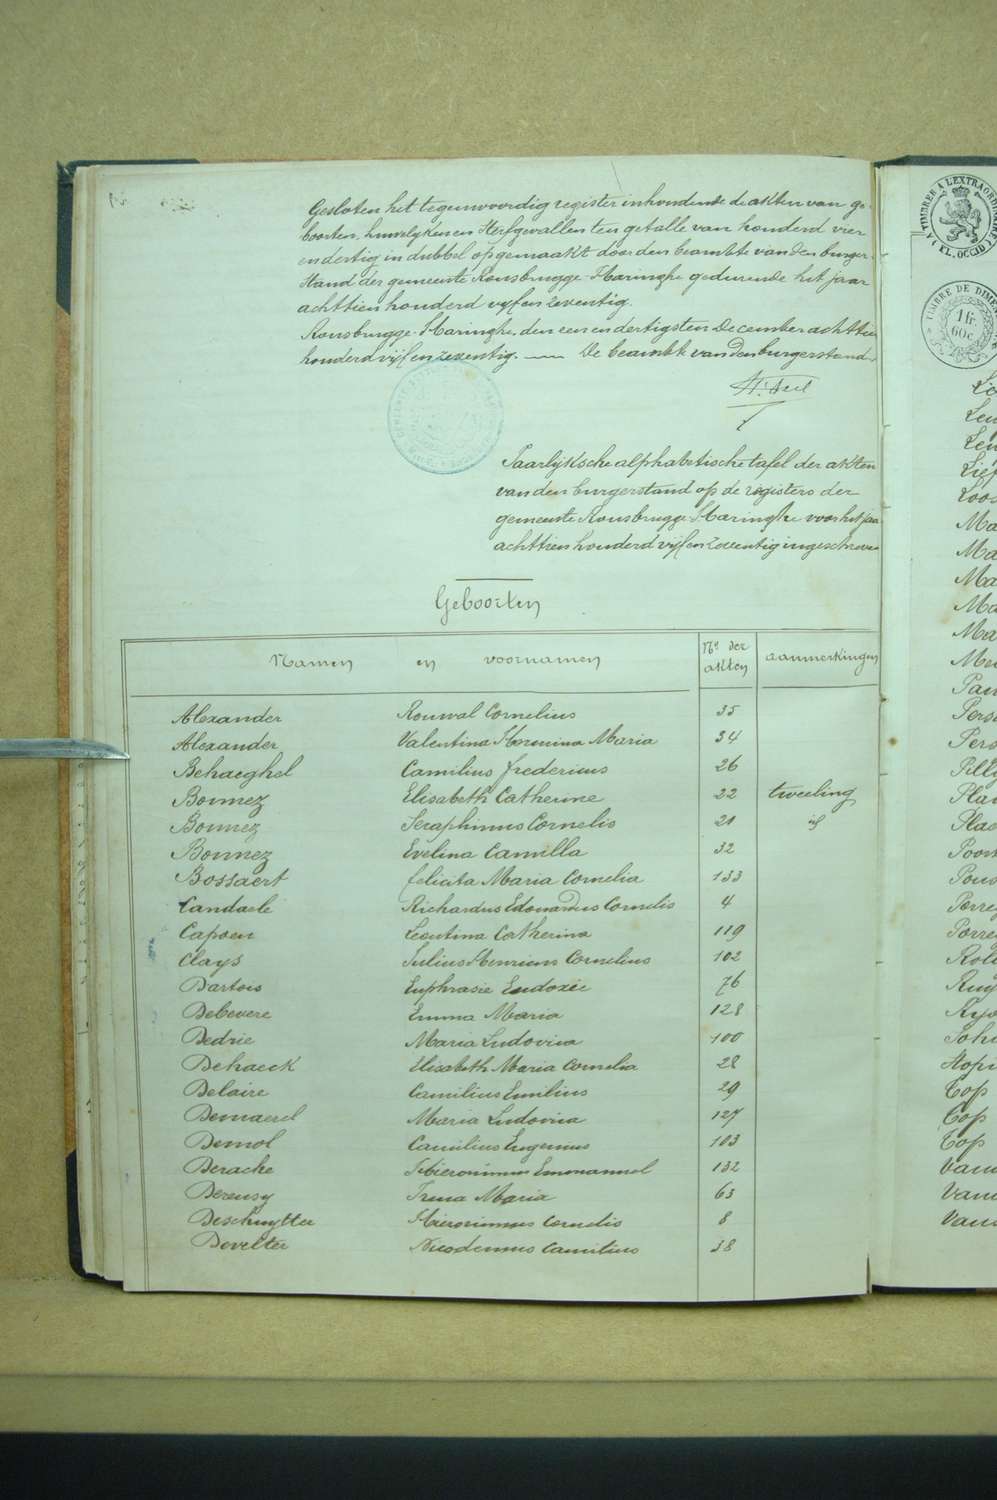 Gesloten het tegenwoordig register inhoudende de akten van ge-
boorten, huwelijken en sterfgevallen ten getalle van honderd vier
en dertig in dubbel opgemaakt door den beambte van den burger-
stand der gemeente Rousbrugge-Haringhe gedurende het jaar
achttien honderd vijf en zeventig.
Rousbrugge-Haringhe, den een en dertigsten December achttien
honderd vijf en zeventig. — De beambte van den burgerstand.
Jaarlijksche alphabetische tafel der akten
van den burgerstand op de registers der
gemeente Rousbrugge-Haringhe voor het jaar
achttien honderd vijf en zeventig ingeschreven
Geboorten
Namen en voornamen Nrs der akten aanmerkingen
Alexander Cornelius 35
Alexander Valentina Herminia Maria 34
Behaeghel Camilius fredericus 26
Bonnez Elisabeth Catherine 22 tweeling
Bonnez Seraphinus Cornelis 21 id
Bonnez Evelina Camilla 32
Bossaert feliata Maria Cornelia 133
Candaele Richardus Edouardus Cornelis 4
Capoen Leontina Catherina 119
Clays Julius Henricus Cornelius 102
Dartois Euphrasie Eudoxie 76
Debevere Emma Maria 128
Dedrie Maria Ludovica 100
Dehaeck Elisabeth Maria Cornelia 28
Delaire Camilius Emilius 29
Demaerel Maria Ludovica 127
Demol Camilius Eugenius 103
Derache Hieronimus Emmanuel 132
Dereusy Irena Maria 63
Deschuytter Hieronimus Cornelis 8
Develter Nicodemus Camilius 38
TIMBRE A L'EXTRAORDINAIRE
(FL. OCCID.)
TIMBRE DE DIMEN
1 fr.
60 c.